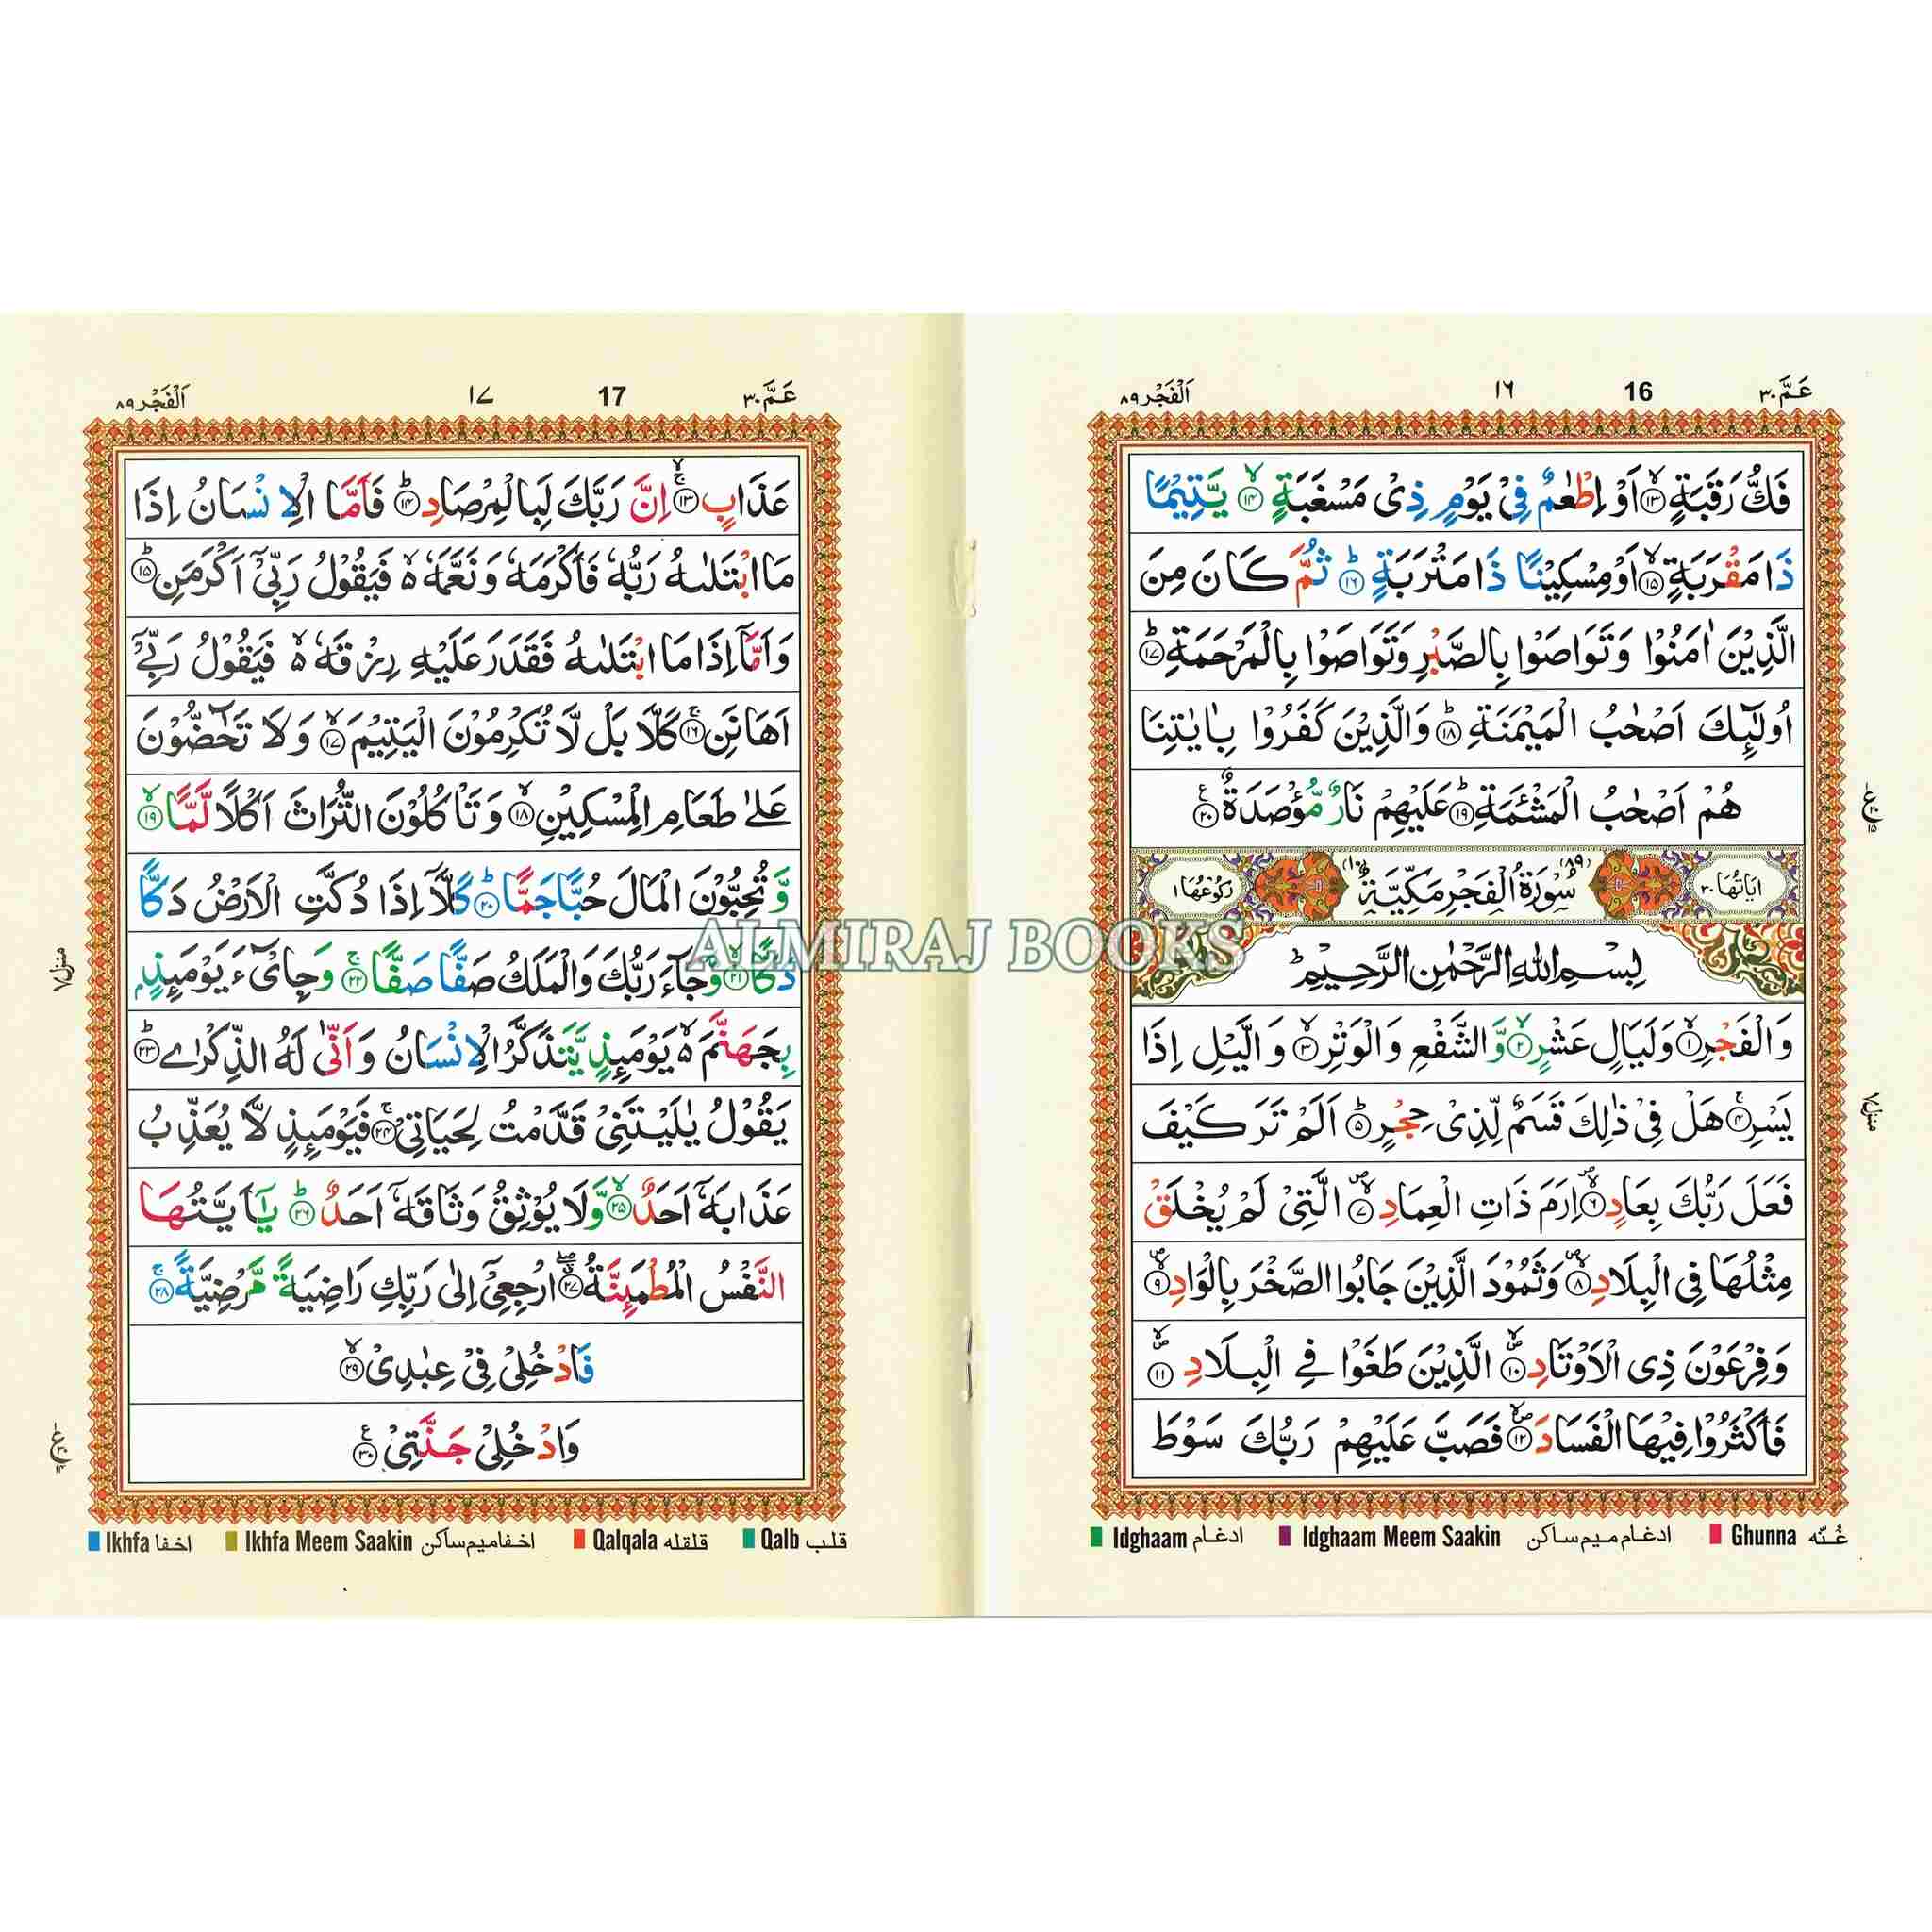 عَمَّ ٣٠ 16 ١٦ اَلْفَجْر ٨٩
فَكُّ رَقَبَةٍ ۙ﴿١٣﴾ اَوْ اِطْعٰمٌ فِیْ یَوْمٍ ذِیْ مَسْغَبَةٍ ۙ﴿١٤﴾ یَّتِیْمًا
ذَا مَقْرَبَةٍ ۙ﴿١٥﴾ اَوْ مِسْكِیْنًا ذَا مَتْرَبَةٍ ؕ﴿١٦﴾ ثُمَّ كَانَ مِنَ
الَّذِیْنَ اٰمَنُوْا وَتَوَاصَوْا بِالصَّبْرِ وَتَوَاصَوْا بِالْمَرْحَمَةِ ؕ﴿١٧﴾
اُولٰٓئِكَ اَصْحٰبُ الْمَیْمَنَةِ ؕ﴿١٨﴾ وَالَّذِیْنَ كَفَرُوْا بِاٰیٰتِنَا
هُمْ اَصْحٰبُ الْمَشْـَٔمَةِ ؕ﴿١٩﴾ عَلَیْهِمْ نَارٌ مُّؤْصَدَةٌ ۠﴿٢٠﴾
اٰیَاتُهَا ٣٠ (٨٩) سُوْرَةُ الْفَجْرِ مَكِّیَّةٌ (١٠) رُكُوْعُهَا ١
بِسْمِ اللّٰهِ الرَّحْمٰنِ الرَّحِیْمِ
وَالْفَجْرِ ۙ﴿١﴾ وَلَیَالٍ عَشْرٍ ۙ﴿٢﴾ وَّالشَّفْعِ وَالْوَتْرِ ۙ﴿٣﴾ وَالَّیْلِ اِذَا
یَسْرِ ۚ﴿٤﴾ هَلْ فِیْ ذٰلِكَ قَسَمٌ لِّذِیْ حِجْرٍ ؕ﴿٥﴾ اَلَمْ تَرَ كَیْفَ
فَعَلَ رَبُّكَ بِعَادٍ ۙ﴿٦﴾ اِرَمَ ذَاتِ الْعِمَادِ ۙ﴿٧﴾ الَّتِیْ لَمْ یُخْلَقْ
مِثْلُهَا فِی الْبِلَادِ ۙ﴿٨﴾ وَثَمُوْدَ الَّذِیْنَ جَابُوا الصَّخْرَ بِالْوَادِ ۙ﴿٩﴾
وَفِرْعَوْنَ ذِی الْاَوْتَادِ ۙ﴿١٠﴾ الَّذِیْنَ طَغَوْا فِی الْبِلَادِ ۙ﴿١١﴾
فَاَكْثَرُوْا فِیْهَا الْفَسَادَ ۙ﴿١٢﴾ فَصَبَّ عَلَیْهِمْ رَبُّكَ سَوْطَ
منزل ٧
Idghaam ادغام Idghaam Meem Saakin ادغام میم ساكن Ghunna غُنّه
عَمَّ ٣٠ 17 ١٧ اَلْفَجْر ٨٩
عَذَابٍ ۚ﴿١٣﴾ اِنَّ رَبَّكَ لَبِالْمِرْصَادِ ؕ﴿١٤﴾ فَاَمَّا الْاِنْسَانُ اِذَا
مَا ابْتَلٰىهُ رَبُّهٗ فَاَكْرَمَهٗ وَنَعَّمَهٗ ۬ۙ فَیَقُوْلُ رَبِّیْۤ اَكْرَمَنِ ؕ﴿١٥﴾
وَاَمَّاۤ اِذَا مَا ابْتَلٰىهُ فَقَدَرَ عَلَیْهِ رِزْقَهٗ ۬ۙ فَیَقُوْلُ رَبِّیْۤ
اَهَانَنِ ۚ﴿١٦﴾ كَلَّا بَلْ لَّا تُكْرِمُوْنَ الْیَتِیْمَ ۙ﴿١٧﴾ وَلَا تَحٰٓضُّوْنَ
عَلٰی طَعَامِ الْمِسْكِیْنِ ۙ﴿١٨﴾ وَتَاْكُلُوْنَ التُّرَاثَ اَكْلًا لَّمًّا ۙ﴿١٩﴾
وَّتُحِبُّوْنَ الْمَالَ حُبًّا جَمًّا ؕ﴿٢٠﴾ كَلَّاۤ اِذَا دُكَّتِ الْاَرْضُ دَكًّا
دَكًّا ۙ﴿٢١﴾ وَّجَآءَ رَبُّكَ وَالْمَلَكُ صَفًّا صَفًّا ۚ﴿٢٢﴾ وَجِایْٓءَ یَوْمَىِٕذٍۭ
بِجَهَنَّمَ ۬ۙ یَوْمَىِٕذٍ یَّتَذَكَّرُ الْاِنْسَانُ وَاَنّٰی لَهُ الذِّكْرٰی ؕ﴿٢٣﴾
یَقُوْلُ یٰلَیْتَنِیْ قَدَّمْتُ لِحَیَاتِیْ ۚ﴿٢٤﴾ فَیَوْمَىِٕذٍ لَّا یُعَذِّبُ
عَذَابَهٗۤ اَحَدٌ ۙ﴿٢٥﴾ وَّلَا یُوْثِقُ وَثَاقَهٗۤ اَحَدٌ ؕ﴿٢٦﴾ یٰۤاَیَّتُهَا
النَّفْسُ الْمُطْمَىِٕنَّةُ ۗۖ﴿٢٧﴾ ارْجِعِیْۤ اِلٰی رَبِّكِ رَاضِیَةً مَّرْضِیَّةً ۚ﴿٢٨﴾
فَادْخُلِیْ فِیْ عِبٰدِیْ ۙ﴿٢٩﴾
وَادْخُلِیْ جَنَّتِیْ ۠﴿٣٠﴾
منزل ٧
Ikhfa اخفا Ikhfa Meem Saakin اخفا میم ساكن Qalqala قلقله Qalb قلب
ALMIRAJ BOOKS